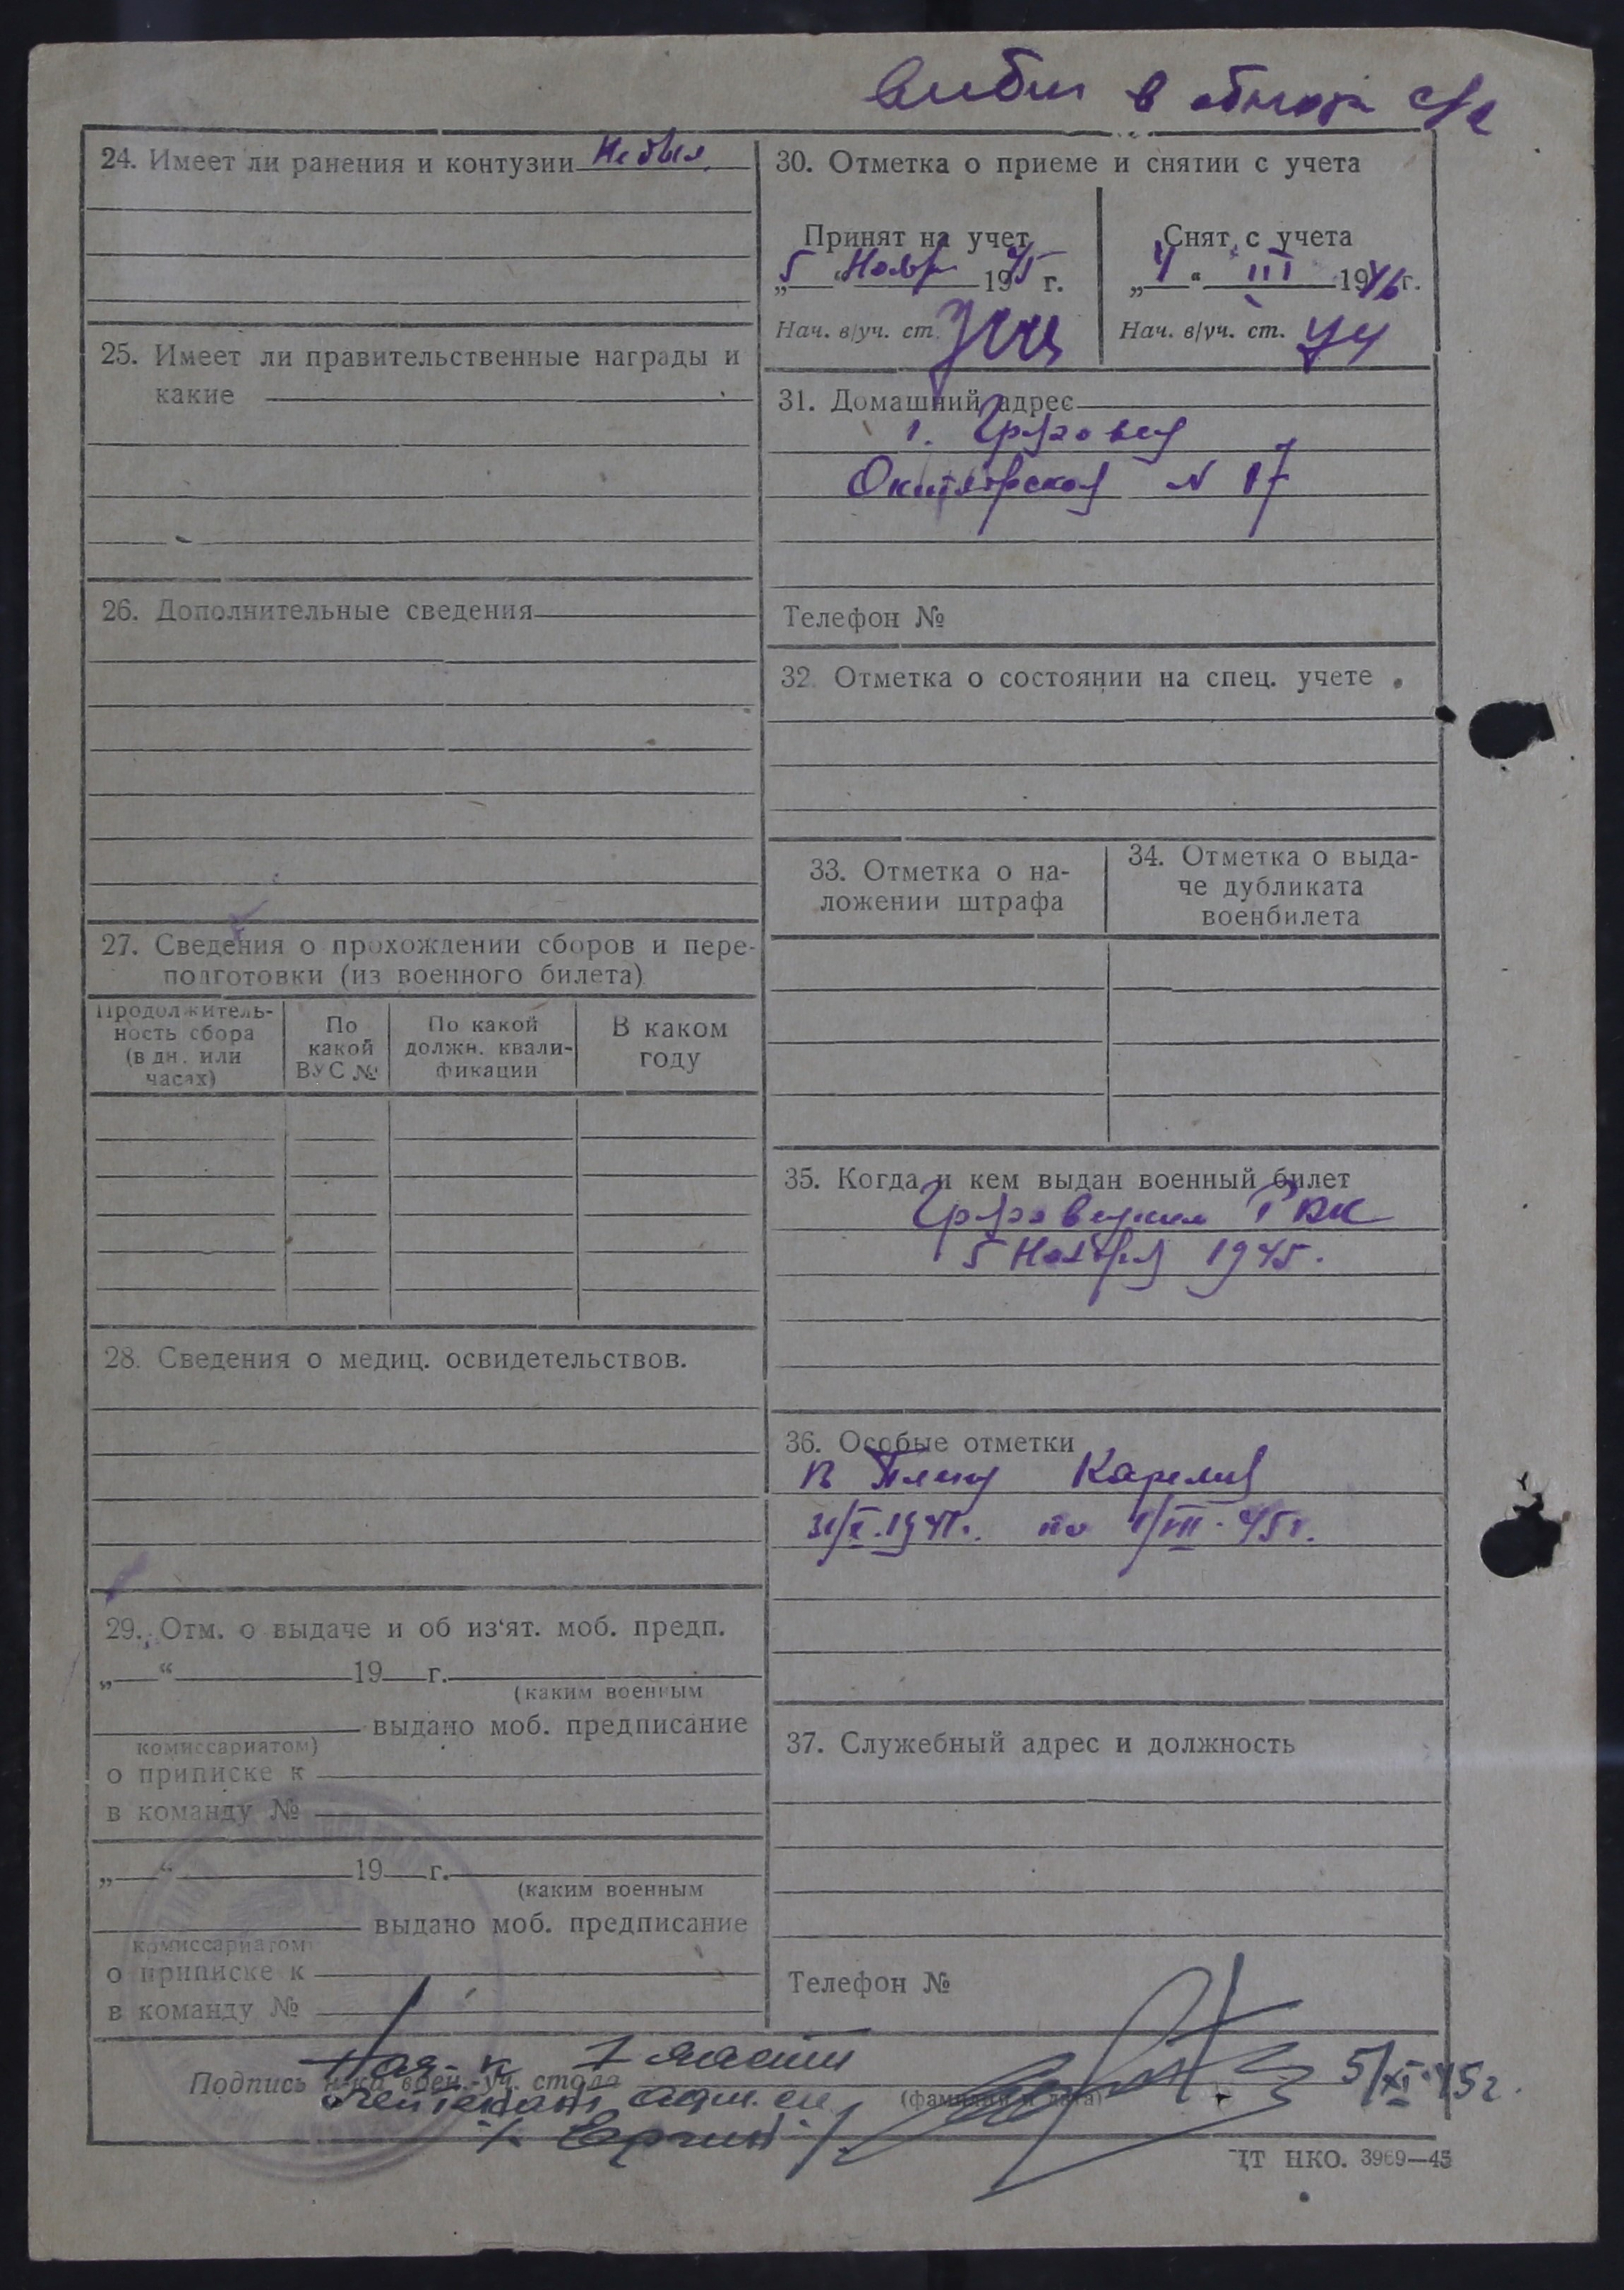 24. Имеет ли ранения и контузии Не был
25. Имеет ли правительственные награды и
какие
26. Дополнительные сведения
27. Сведения о прохождении сборов и пере-
подготовки (из военного билета)
Продолжитель-
ность сбора
(в дн. или
часах)
По
какой
ВУС №
По какой
должн. квали-
фикации
В каком
году
28. Сведения о медиц. освидетельствов.
29. Отм. о выдаче и об из‘ят. моб. предп.
„ “ 19 г.
(каким военным
выдано моб. предписание
комиссариатом)
о приписке к
в команду №
„ “ 19 г.
(каким военным
выдано моб. предписание
комиссариатом
о приписке к
в команду №
30. Отметка о приеме и снятии с учета
Принят на учет
„5 “ Ноябр 1945 г.
Нач. в/уч. ст.
Снят с учета
„4 “ III 1946 г.
Нач. в/уч. ст.
31. Домашний адрес
г. Грязовец
Октябрьская N 87
Телефон №
32. Отметка о состоянии на спец. учете
33. Отметка о на-
ложении штрафа
34. Отметка о выда-
че дубликата
военбилета
35. Когда и кем выдан военный билет
Грязовецким РВК
5 Ноября 1945.
36. Особые отметки
В Плену Карелия
31/X.1941г. по 1/VII-45г.
37. Служебный адрес и должность
Телефон №
Нач-к 1 части
Подпись н-ка воен.-уч. стола
лейтенант адм. сл.
(фамилия и дата)
5/XI-45г.
ЦТ НКО. 3969—45